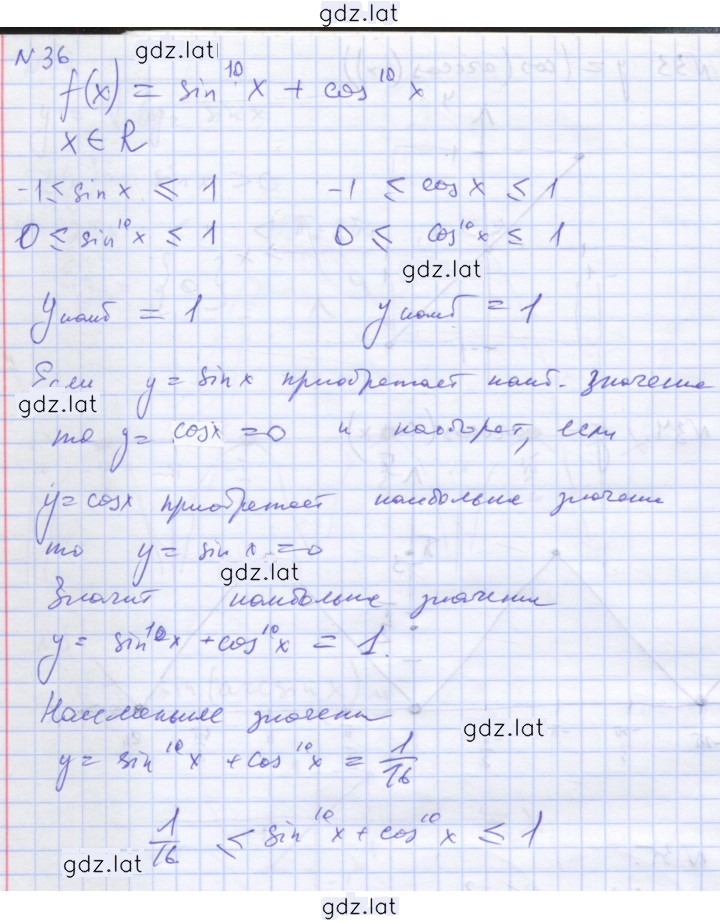 gdz.lat
N 36
gdz.lat
f(x) = sin¹⁰x + cos¹⁰x
x ∈ R
-1 ≤ sin x ≤ 1 -1 ≤ cos x ≤ 1
0 ≤ sin¹⁰x ≤ 1 0 ≤ cos¹⁰x ≤ 1
gdz.lat
y наиб = 1 y наиб = 1
Если y = sin x приобретает наиб. значение
gdz.lat
то y = cosx = 0 и наоборот, если
y = cosx приобретает наибольше значение
то y = sin x = 0
gdz.lat
Значит наибольше значение
y = sin¹⁰x + cos¹⁰x = 1.
Наименьшее значение
gdz.lat
y = sin¹⁰x + cos¹⁰x = 1/16
1/16 ≤ sin¹⁰x + cos¹⁰x ≤ 1
gdz.lat
gdz.lat